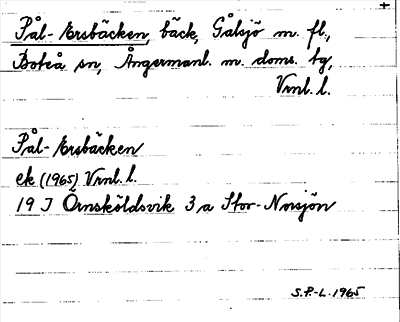 Pål-Ersbäcken, bäck, Gålsjö m. fl.,
Boteå sn, Ångermanl. m. doms. tg,
Vrnl. l.
Pål-Ersbäcken
ek (1965) Vrnl. l.
19 J Örnsköldsvik 3 a Stor-Norsjön
S.P.-L. 1965